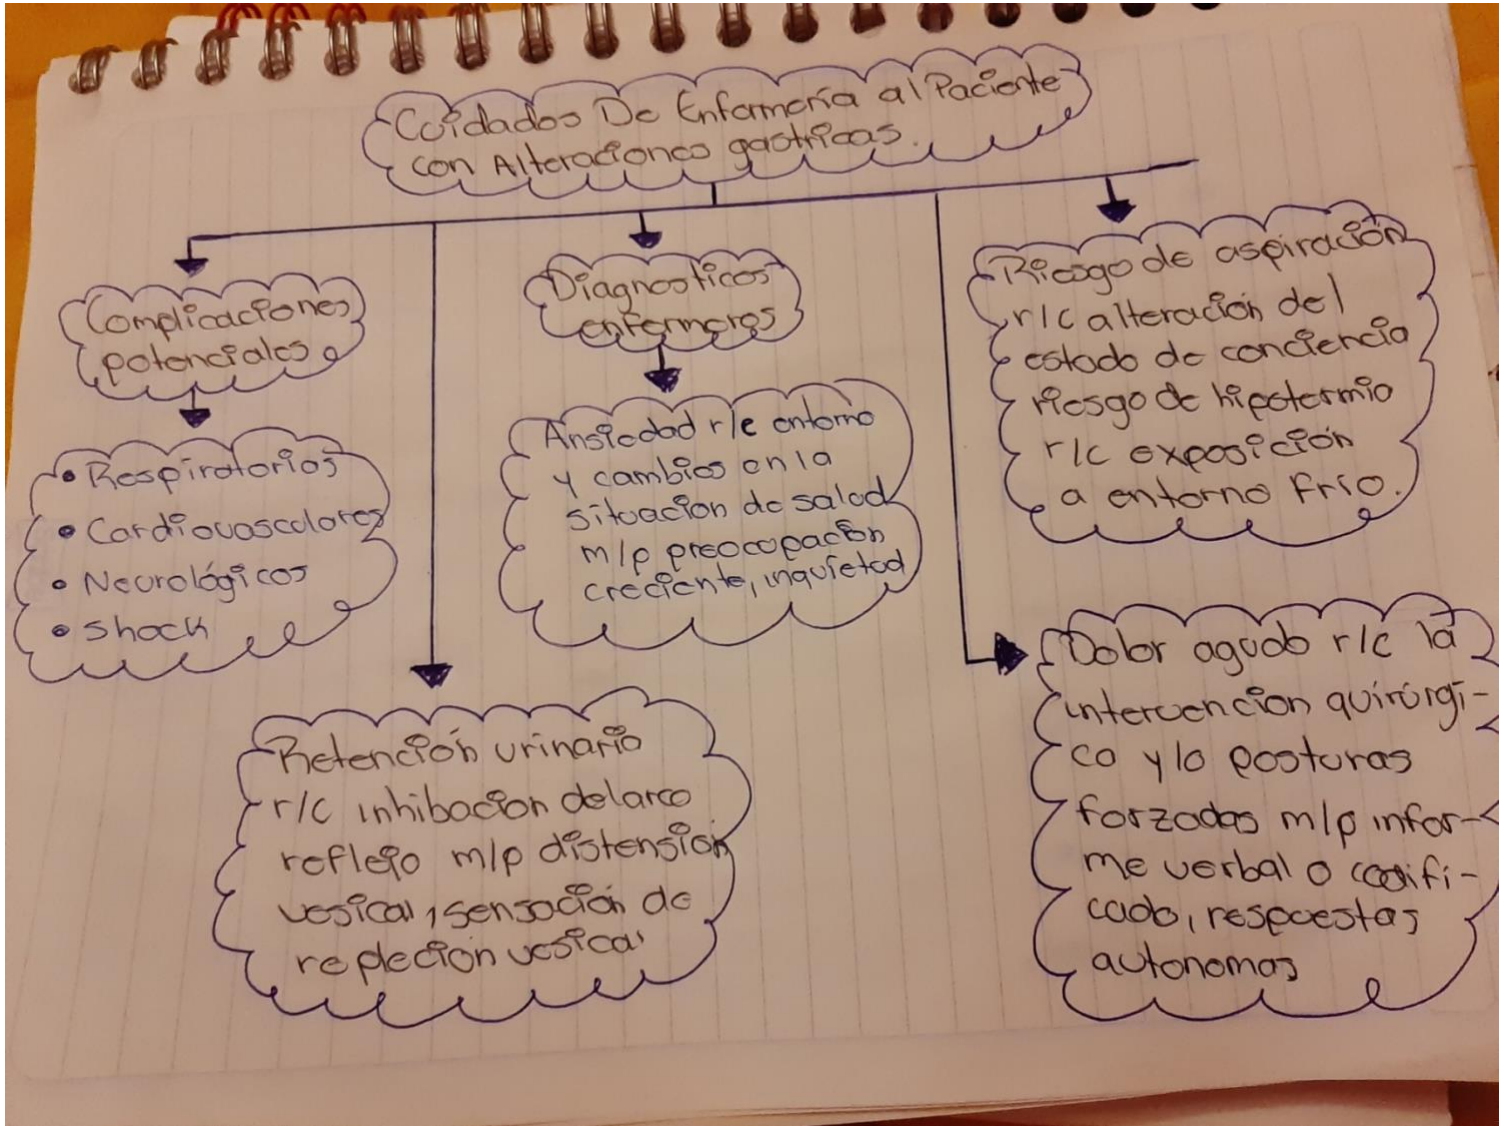 Cuidados De Enfermería al Paciente
con Alteraciones gastricas.
Complicaciones
potenciales
• Respiratorios
• Cardiovasculares
• Neurológicos
• Shock
Diagnosticos
enfermeros
Ansiedad r/c entorno
y cambios en la
situacion de salud
m/p preocupación
creciente, inquietud
Riesgo de aspiración
r/c alteración del
estado de conciencia
riesgo de hipotermia
r/c exposición
a entorno frío.
Retención urinario
r/c inhibación del arco
reflejo m/p distensión
vesical, sensación de
repleción vesical
Dolor agudo r/c la
intervencion quirúrgi-
ca y/o posturas
forzadas m/p infor-
me verbal o codifi-
cado, respuestas
autonomas